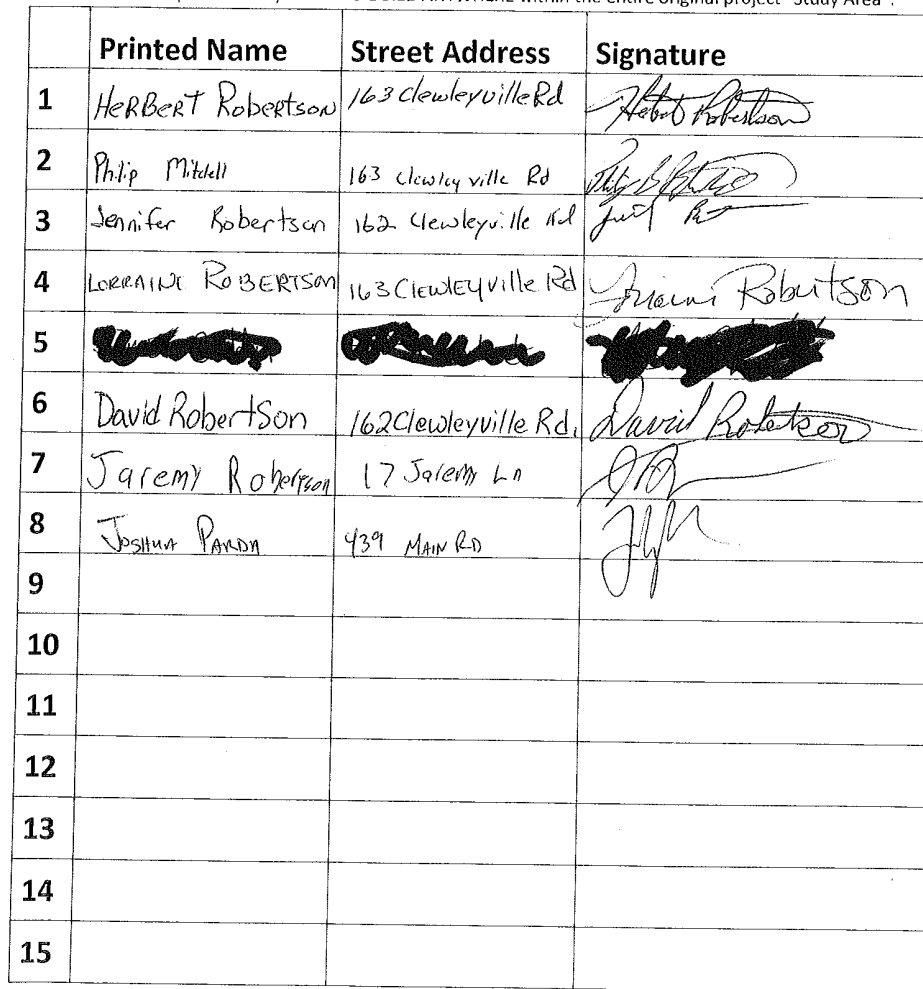 within the entire original project "Study Area".
Printed Name Street Address Signature
1 HERBERT Robertson 163 Clewleyville Rd Robertson
2 Philip Mitchell 163 Clewley ville Rd
3 Jennifer Robertson 162 Clewleyville Rd
4 LORRAINE ROBERTSON 163 ClewLEyville Rd Robertson
5
6 David Robertson 162 Clewleyville Rd. David Robertson
7 Jaremy Robertson 17 Jaremy Ln
8 JOSHUA PARDA 439 MAIN RD
9
10
11
12
13
14
15